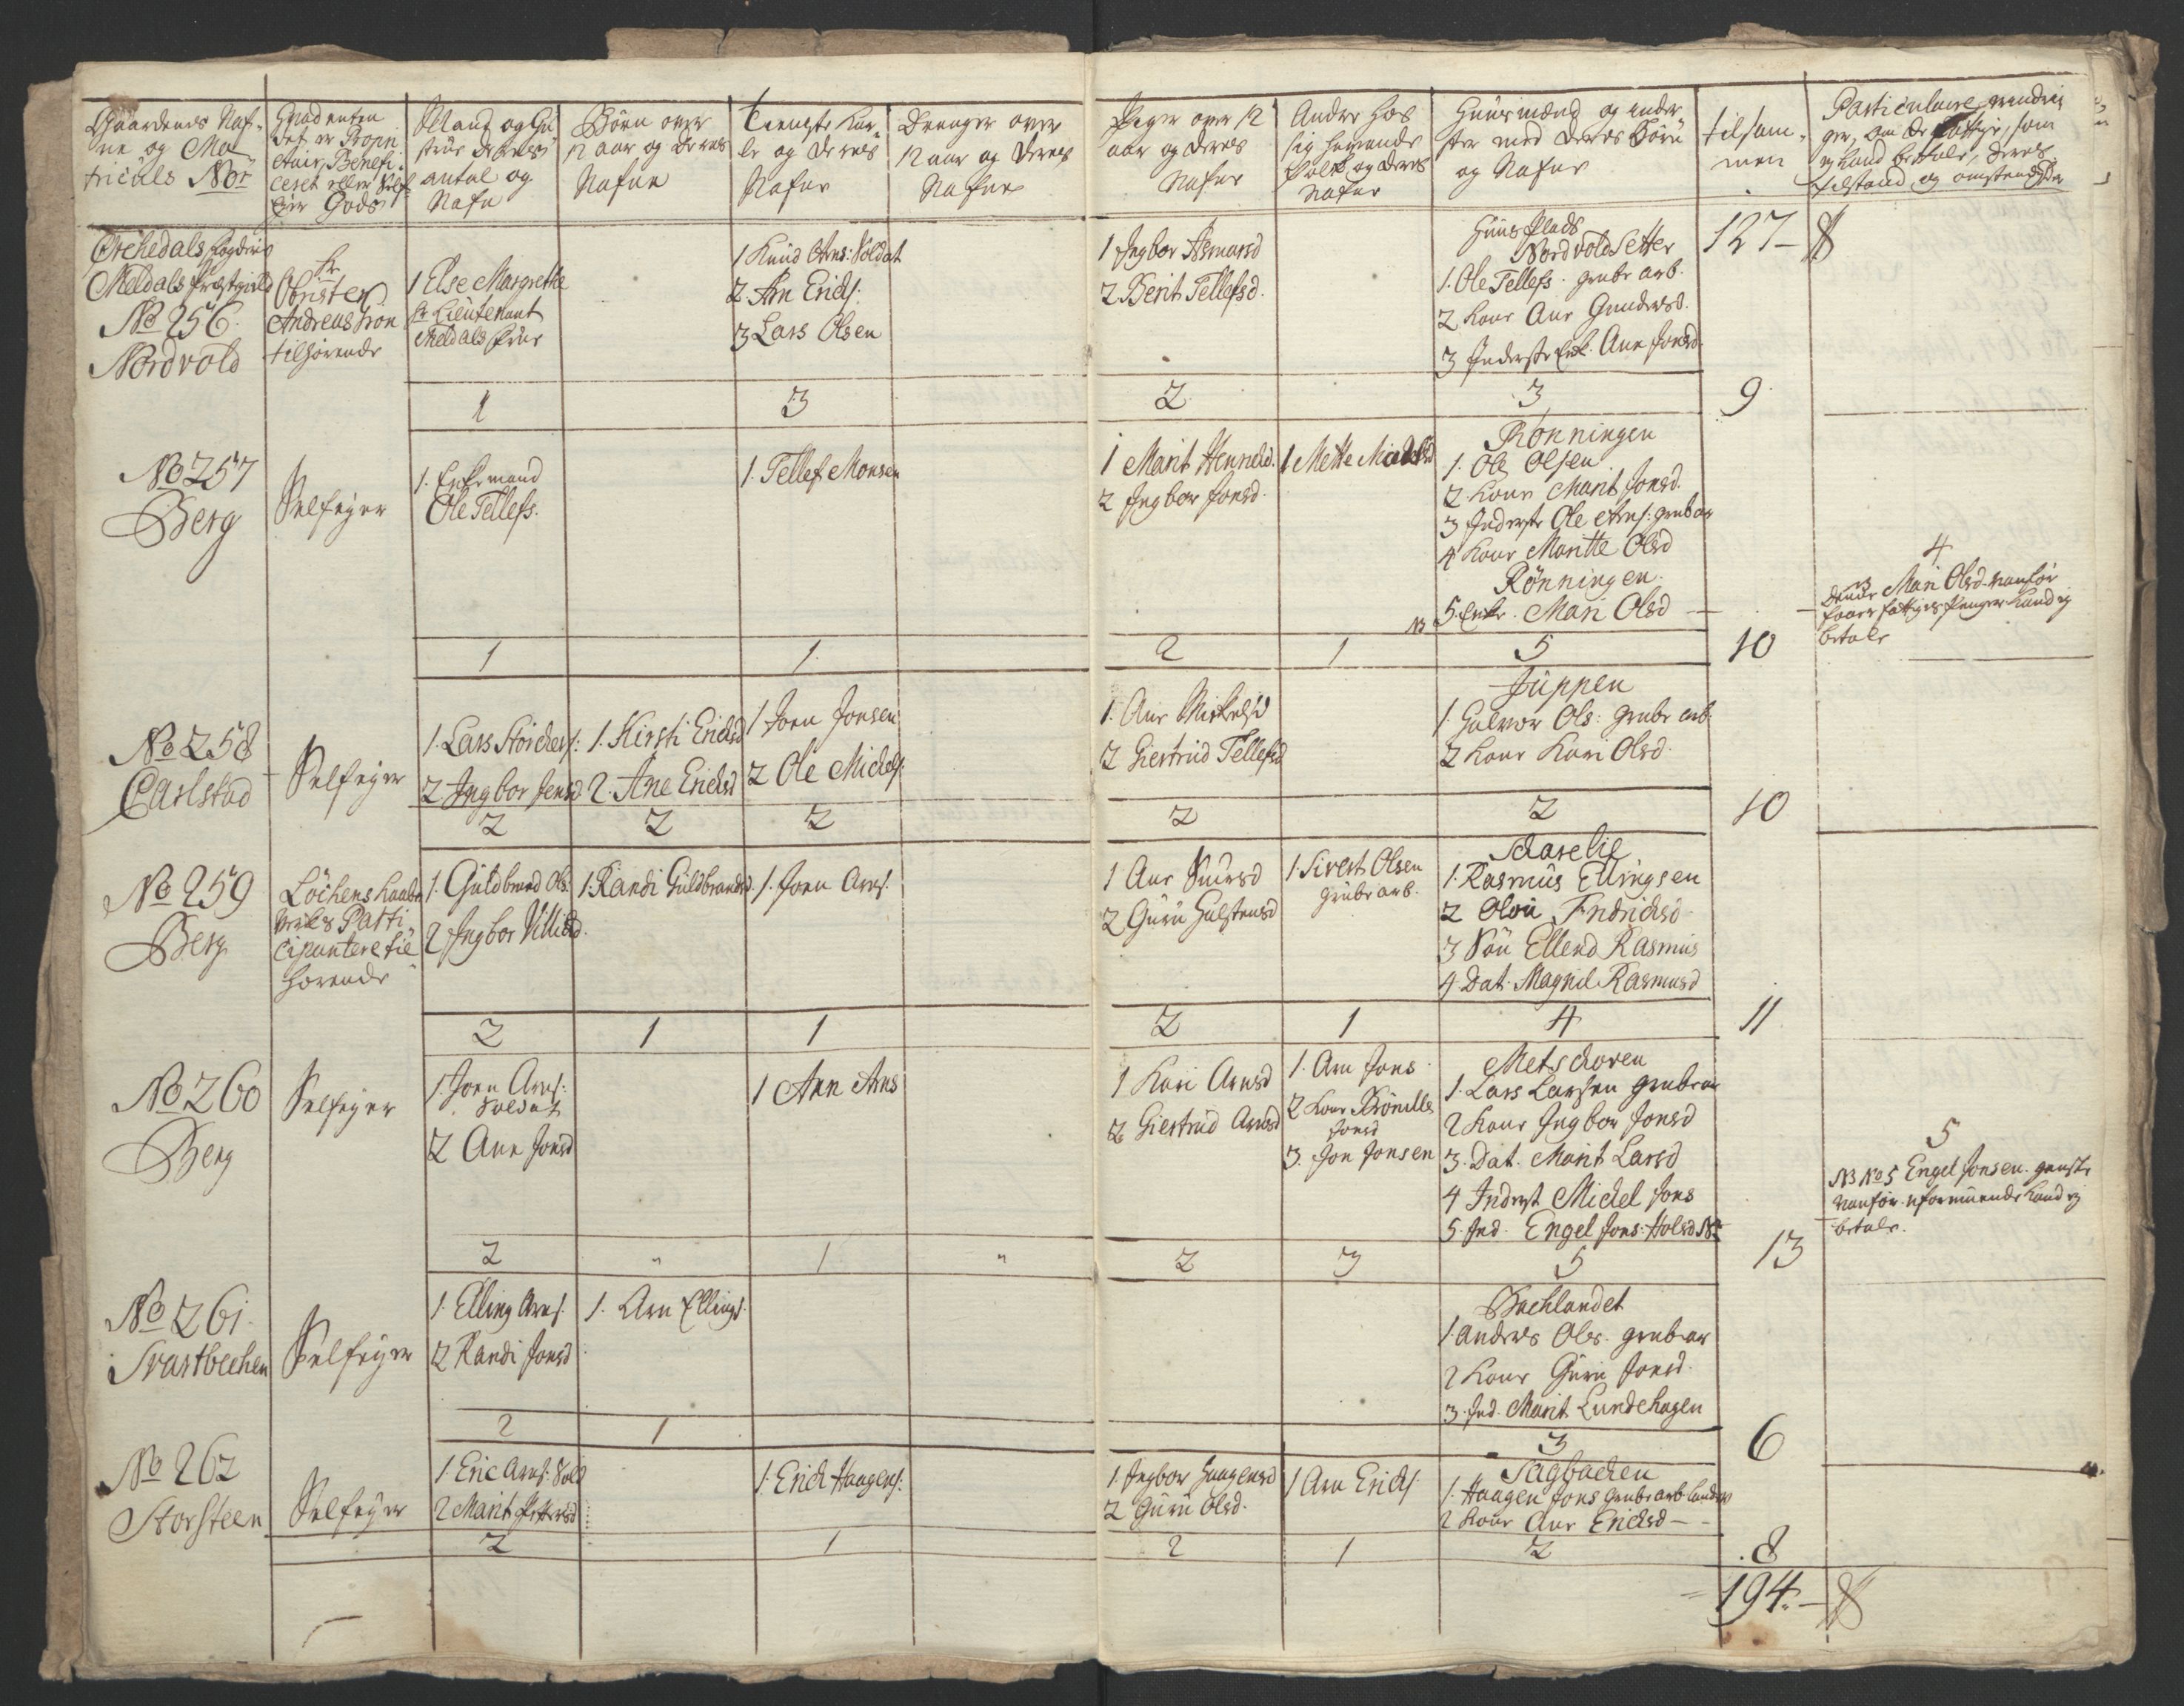 Gaardenes Naf-
ne og Ma
triculs Nor
Hvad enten
det er Propri
etair, Benefi-
ceret eller Self
Eier Gods
Mand og Hu
strue deres
antal og
Nafn
Børn over
12 aar og deres
Nafne
Tieneste Kar-
le og deres
Nafne
Drenger over
12 aar og deres
Nafne
Piger over 12
aar og deres
Nafne
Andre hos
sig havende
Folk og deres
Nafne
Huusmænd og inder
ster med deres Børn
og Nafne
tilsam-
men
Particulaire
ger, om de fattige, som
ej kand betale, deres
tilstand og omstendigheder
Orchedals fogderie
Meldals Prestgield
No 256.
Nordvold
Hr
Obrister
Andreas Grøn
tilhørende
1 Else Margrethe
Hr Lieutenant
Meldals frue
1 Knud Arns: Soldat
2 Arn Erichs:
3 Lars Olsen
1 Ingbor Asmarsd
2 Berit Tellefsd.
Huus Plads
Nordvold Setter
1. Ole Tellefs. grube arb.
2 Kone Ane Gundersd.
3 Inderste Enk. Ane Jonsd.
127-
1
3
2
3
9
No 257
Berg
Selfeyer
1. Enkemand
Ole Tellefs.
1. Tellef Monsen
1 Marit Hennedsd.
2 Ingbor Jonsd.
1 Mette
Rønningen
1. Ole Olsen
2. Kone Marit Jonsd.
3 Inderste Ole Arns: grub ar
4 Kone Maritte Olsd
Rønningen.
NB 5. Enke. Mari Olsd
4
Denne Mari Olsd vanfør
faaer fattiges Penger kand ej
betale
1
1.
2
1
5
10
No 258
Carlstad
Selfeyer
1. Lars Storchers:
2 Ingbor Jensd
1. Kirsti Erichsd
2. Ane Erichsd
1 Joen Jonsen
2 Ole Michels:
1. Ane Mickelsd
2 Giertrud Tellefsd
Juppen
1. Halvor Ols: grube arb.
2 Kone Kari Olsd.
2
2
2
2
2
10
No 259
Berg
Løchens Kaaber
verks Parti-
cipantere til
hørende
1. Guldbrand Ols:
2 Ingbor Villisd.
1. Randi Guldbrandsd
1. Joen Arns.
1 Ane Siursd
2 Guru Halstensd
1. Sivert Olsen
grube arb.
Scharelie
1. Rasmus Ellingsen
2 Olou Fridrichsd
3 Søn Ellend Rasmus
4. Dat. Magnil Rasmusd
2
1
1
2
1
4
11
No 260
Berg
Selfeyer
1. Joen Arns:
Soldat
2 Ane Jonsd
1 Arn Arns
1 Kari Arnsd
2 Giertrud Arnsd
1. Arn Jons
2 Kone Brønille
Jonsd
3. Jon Jonsen
Metschoven
1. Lars Larsen grub ar
2 Kone Ingbor Jonsd
3. Dat. Marit Larsd
4 Inderst Michel Jons
5. Ind. Engel Jons:
5
NB No 5 Engel Jonsen. ganske
vanfør uformuende kand ej
betale.
2
"
1
"
2
3
5
13
No 261.
Svartbechen
Selfeyer
1. Elling Arns.
2 Randi Jonsd
1. Arn Ellings.
Bachlandet
1. Andreas Ols. grub ar
2 Kone Guru Jonsd.
3. Ind. Marit Lundehagen
2
1
3
6
No 262
Storsteen
Selfeyer
1. Eric Arns: Sold
2 Marit Pettersd
1. Erich Haagens:
1. Ingbor Haagensd
2 Guru Olsd.
1 Arn Erichs
Sagbachen
1. Haagen Jons grube arb
2 Kone Ane Erichsd
2
1
2
1
2
8
194.